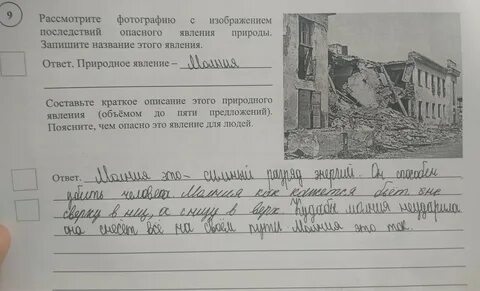 9
Рассмотрите фотографию с изображением
последствий опасного явления природы.
Запишите название этого явления.
Ответ. Природное явление – Молния
Составьте краткое описание этого природного
явления (объёмом до пяти предложений).
Поясните, чем опасно это явление для людей.
Ответ. Молния это - сильный разряд энергий. Он способен
убить человека. Молния как кажется бьёт не
сверху в низ, а снизу в верх. Куда бы молния неударила
она снесёт всё на своём пути Молния это ток.